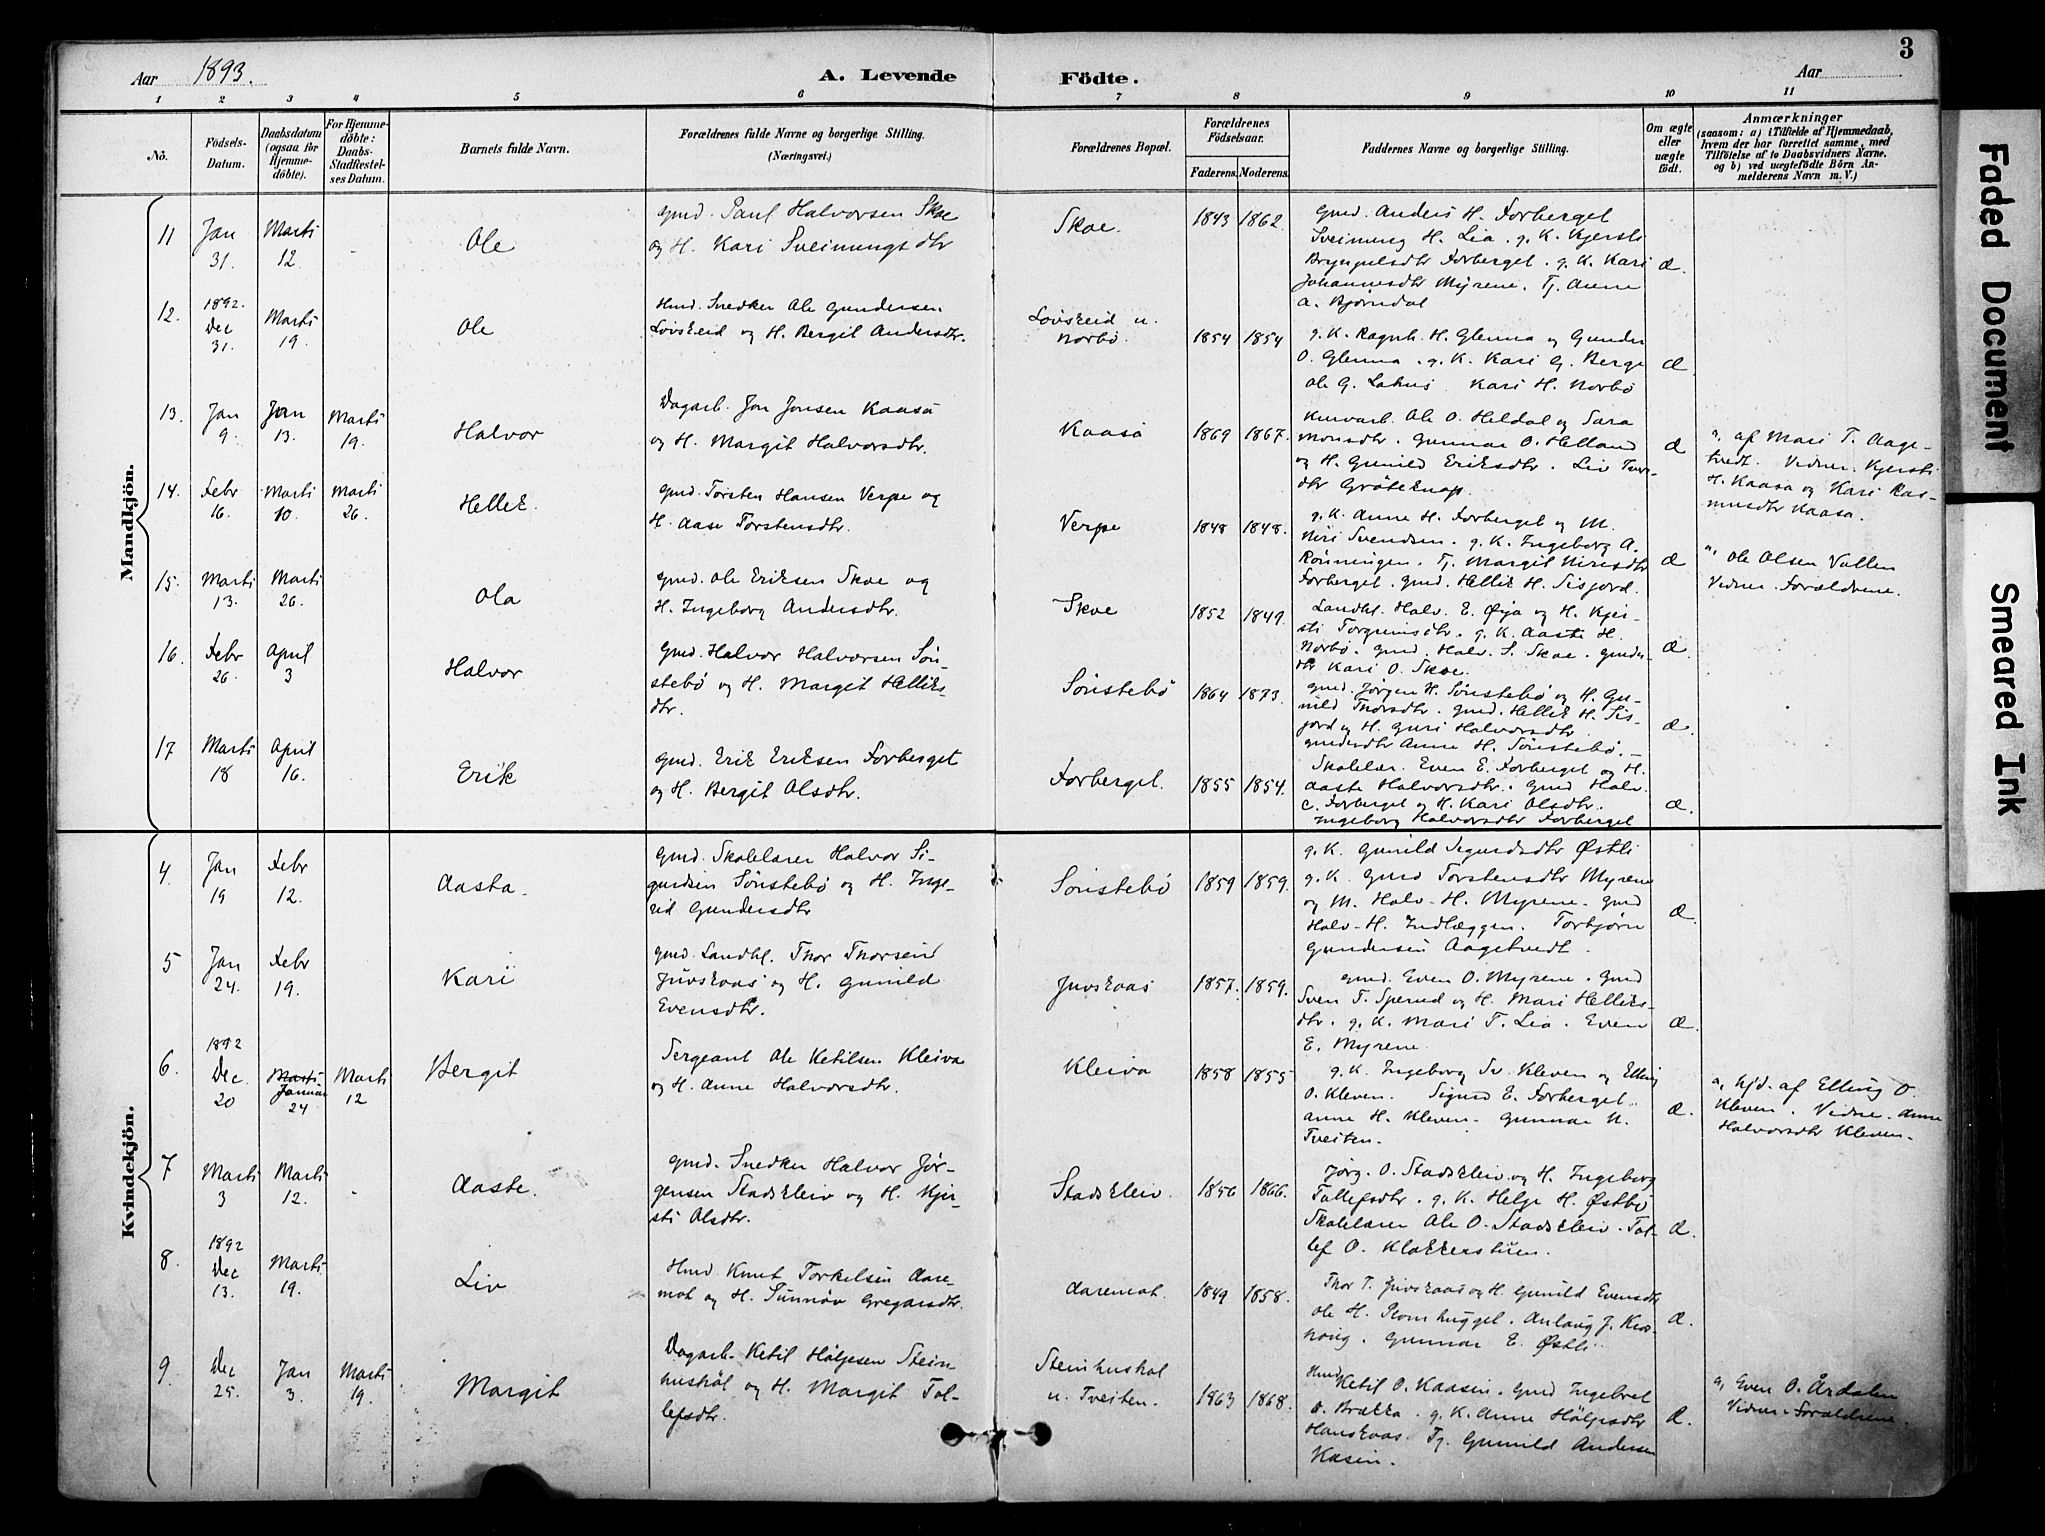 3
Aar 1893.
A. Levende Födte.
Aar
1 2 3 4 5 6 7 8 9 10 11
No.
Födsels-Datum.
Daabsdatum (ogsaa for Hjemme-döbte).
For Hjemme-döbte: Daabs-Stadfæstel-ses Datum.
Barnets fulde Navn.
Forældrenes fulde Navne og borgerlige Stilling. (Næringsvei.)
Forældrenes Bopæl.
Forældrenes Födselsaar.
Faderens. Moderens.
Faddernes Navne og borgerlige Stilling.
Om ægte eller uægte födt.
Anmærkninger
(saasom: a) i Tilfælde af Hjemmedaab,
hvem der har forrettet samme, med
Tilföielse af to Daabsvidners Navne,
og b) ved uægtefödte Börn An-
melderens Navn m. V.)
Mandkjön.
11 Jan 31. Marti 12. - Ole
Gmd. Paul Halvorsen Skoe
og H. Kari Sveinungsdtr
Skoe. 1843 1862.
Gmd. Anders H. Forberget
Sveinung H. Lia. g. K. Kjersti
Brynjulsdtr Forberget. g. K. Kari
Johannesdtr Myrene. Tj. Anne
a. Bjørndal
Æ.
12. 1892. Dec 31. Marti 19. Ole
Hmd. Snedker Ole Gundersen
Lovskeid og H. Bergit Andersdtr.
Lovskeid u. Norbø. 1854 1854
g. K. Ragnh. H. Glenna og Gunder
O. Glenna. g. K. Kari G. Berge
Ole G. Lahus Kari H. Norbø
Æ
13. Jan 9. Jan 13. Marti 19. Halvor
Dagarb. Jon Jonsen Kaasa
og H. Margit Halvorsdtr.
Kaasa 1869 1867.
Kurvarb. Ole O. Heldal og Sara
Monsdtr. Gunnar O. Helland
og H. Gunild Eriksdtr. Liv Tor-
dtr Gröteknap.
Æ
a, af Mari T. Aage-
tvedt. Vidner. Kjersti
H. Kaasa og Kari Ras-
musdtr Kaasa.
14. Febr 16. Marti 10. Marti 26. Hellek.
Gmd. Torsten Hansen Verpe og
H. Aase Torstensdtr.
Verpe 1848 1848.
g. K. Anne H. Forberget og M.
Niri Svendsen. g. K. Ingeborg A.
Rönningen. Tj. Margit Nirisdtr
Forberget. Gmd. Hellik H. Sisjord.
Æ
a, Ole Olsen Vallen
Vidner. Forældrene.
15. Marti 13. Marti 26. Ola
Gmd. Ole Eriksen Skoe og
H. Ingeborg Andersdtr.
Skoe 1852 1849.
Landhl. Halv. E. Øya og H. Kjer-
sti Torgrimsdtr. g. K. Aaste H.
Norbø. Gmd. Halv. S. Skoe. Gmder-
dtr Kari O. Skoe.
Æ.
16. Febr 26. April 3 Halvor
Gmd. Halvor Halvorsen Søn-
stebø og H. Margit Helliks-
dtr.
Sönstebö 1864 1873.
Gmd. Jörgen H. Sønstebø og H. Gu-
nild Thorsdtr. Gmd. Hellik H. Sis-
jord og H. Guri Halvorsdtr.
Gmdsdtr Anne H. Sönstebø.-
Æ.
17 Marti 18 April 16. Erik
Gmd. Erik Eriksen Forberget
og H. Bergit Olsdtr.
Forberget. 1855 1854.
Skolelær. Even E. Forberget og H.
Aaste Halvorsdtr. Gmd Halv.
C. Forberget og H. Kari Olsdtr.
Ingeborg Halvorsdtr Forberget
Æ.
Kvindekjön.
4. Jan 19 Febr 12. Aasta.
Gmd. Skolelærer Halvor Si-
gurdsen Sönstebö og H. Inge-
rid Gundersdtr
Sönstebö 1859 1859.
g. K. Gunild Sigurdsdtr Østli
g. K. Gurid Torstensdtr Myrene
og M. Halv. H. Myrene. Gmd
Halv. H. Indlæggen. Torbjörn
Gundersen Aagetvedt.
Æ.
5 Jan 24. Febr 19. Kari
Gmd. Landhl. Thor Thorsen
Juvskaas og H. Gunild
Evensdtr.
Juvskaas 1857. 1859.
Gmd. Even O. Myrene. Gmd
Sven T. Sperud og H. Mari Helliks-
dtr. g. K. Mari T. Lia. Even
E. Myrene.
Æ.
6. 1892 Dec. 20 Januar 24 Marti 12 Bergit
Sergeant Ole Ketilsen Kleiva
og H. Anne Halvorsdtr.
Kleiva 1858 1855
g. K. Ingeborg Sv. Kleven og Elling
O. Kleven. Sigurd E. Forberget.
Anne H. Kleven. Gunnar K.
Tveiten.
Æ.
a, Hjd. af Elling O.
Kleven. Vidne. Anne
Halvorsdtr Kleven.
7 Marti 3 Marti 12. - Aaste.
Gmd. Snedker Halvor Jör-
gensen Stadskleiv og H. Kjer-
sti Olsdtr.
Stadskleiv. 1856 1866.
Jörg. O. Stadskleiv og H. Ingeborg
Tollefsdtr. g. K. Helge H. Østbö
Skolelærer Ole O. Stadskleiv. Tol-
lef O. Klokkerstuen.
Æ.
8. 1892 Dec 13. Marti 19. Liv
Hmd. Knut Torkelsen Aare-
mot og H. Sunnöv Gregarsdtr.
Aaremot. 1849 1858.
Thor T. Juvskaas og H. Gunild Evensdtr
Ole H. Romhugget. Anlaug J. Kros-
haug. Gunnar E. Østli.
Æ.
9. Dec 25. Jan 3. Marti 19. Margit
Dagarb. Ketil Höljesen Stein-
huskol og H. Margit Tol-
lefsdtr.
Steinhuskol u. Tveiten. 1863 1868.
Hmd. Ketil O. Kaasin. Gmd Ingebret
O. Brakka. g. K. Anne Höljesdtr
Hanskaas. Tj. Gunild Andersen
Kasin.
Æ.
a, Even O. Årdalen
Vidner. Forældrene.
Faded Document
Smeared Ink